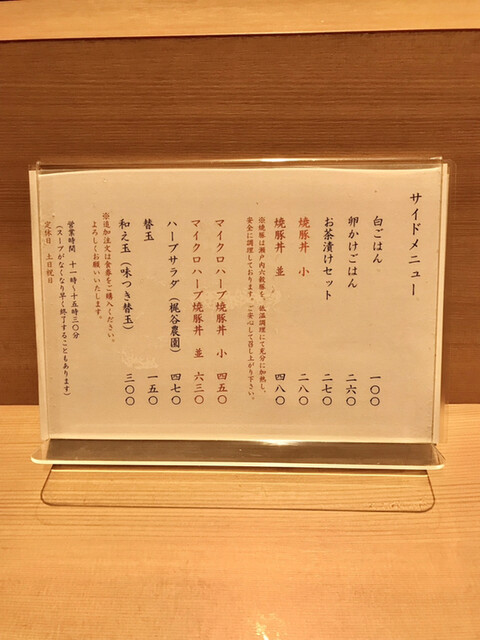 サイドメニュー
白ごはん 一〇〇
卵かけごはん 二六〇
お茶漬けセット 二七〇
焼豚丼 小 二八〇
焼豚丼 並 四八〇
※焼豚は瀬戸内六穀豚を、低温調理にて充分に加熱し、
安全に調理しております。ご安心して召し上がり下さい。
マイクロハーブ焼豚丼 小 四五〇
マイクロハーブ焼豚丼 並 六三〇
ハーブサラダ(梶谷農園) 四七〇
替玉 一五〇
和え玉(味つき替玉) 三〇〇
※追加注文は食券をご購入ください。
よろしくお願いいたします。
営業時間 十一時~十五時三〇分
(スープがなくなり早く終了することもあります)
定休日 土日祝日